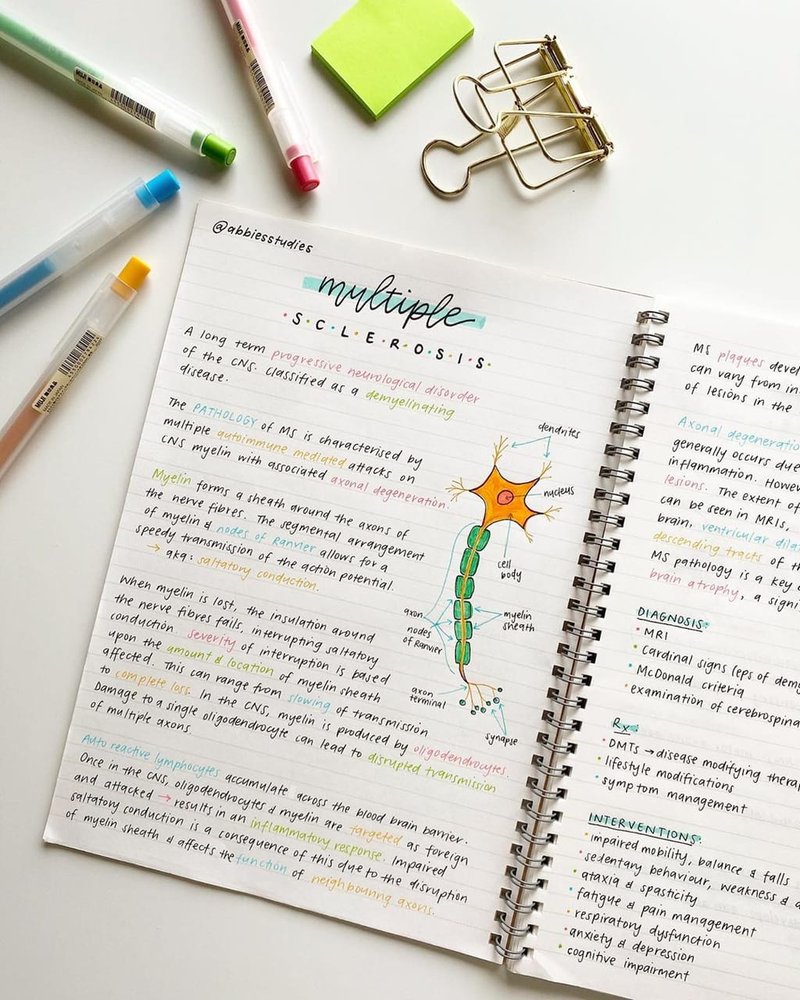 MUJI MOMA
MUJI MOMA
MUJI MOMA
@abbiesstudies
multiple
S·C·L·E·R·O·S·I·S
A long term progressive neurological disorder
of the CNS. Classified as a demyelinating
disease.
The PATHOLOGY of MS is characterised by
multiple autoimmune mediated attacks on
CNS myelin with associated axonal degeneration.
Myelin forms a sheath around the axons of
the nerve fibres. The segmental arrangement
of myelin & nodes of Ranvier allows for a
speedy transmission of the action potential.
→ aka: saltatory conduction.
When myelin is lost, the insulation around
the nerve fibres fails, interrupting saltatory
conduction severity of interruption is based
upon the amount & location of myelin sheath
affected. This can range from slowing of transmission
to complete loss. In the CNS, myelin is produced by oligodendrocytes.
Damage to a single oligodendrocyte can lead to disrupted transmission
of multiple axons.
Auto reactive lymphocytes accumulate across the blood brain barrier.
Once in the CNS, oligodendrocytes & myelin are targeted as foreign
and attacked → results in an inflammatory response. Impaired
saltatory conduction is a consequence of this due to the disruption
of myelin sheath & affects the function of neighbouring axons.
dendrites
nucleus
cell
body
axon
nodes
of Ranvier
myelin
sheath
axon
terminal
synapse
MS plaques devel
can vary from in
of lesions in the
Axonal degeneratio
generally occurs due
inflammation. Howev
lesions. The extent of
can be seen in MRIs,
brain, ventricular dila
descending tracts of th
MS pathology is a key
brain atrophy, a signi
DIAGNOSIS:
• MRI
• Cardinal signs (eps of demy
• McDonald criteria
• examination of cerebrospina
Rx:
• DMTs → disease modifying therap
• lifestyle modifications
• symptom management
INTERVENTIONS:
• impaired mobility, balance & falls
• sedentary behaviour, weakness & d
• ataxia & spasticity
• fatigue & pain management
• respiratory dysfunction
• anxiety & depression
• cognitive impairment